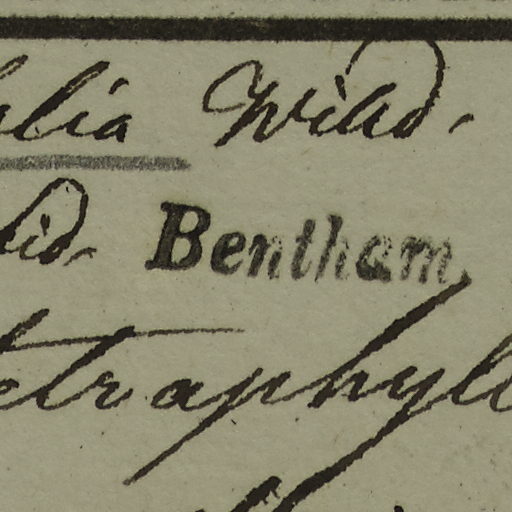 lia Willd.
lld. Bentham
etraphyll